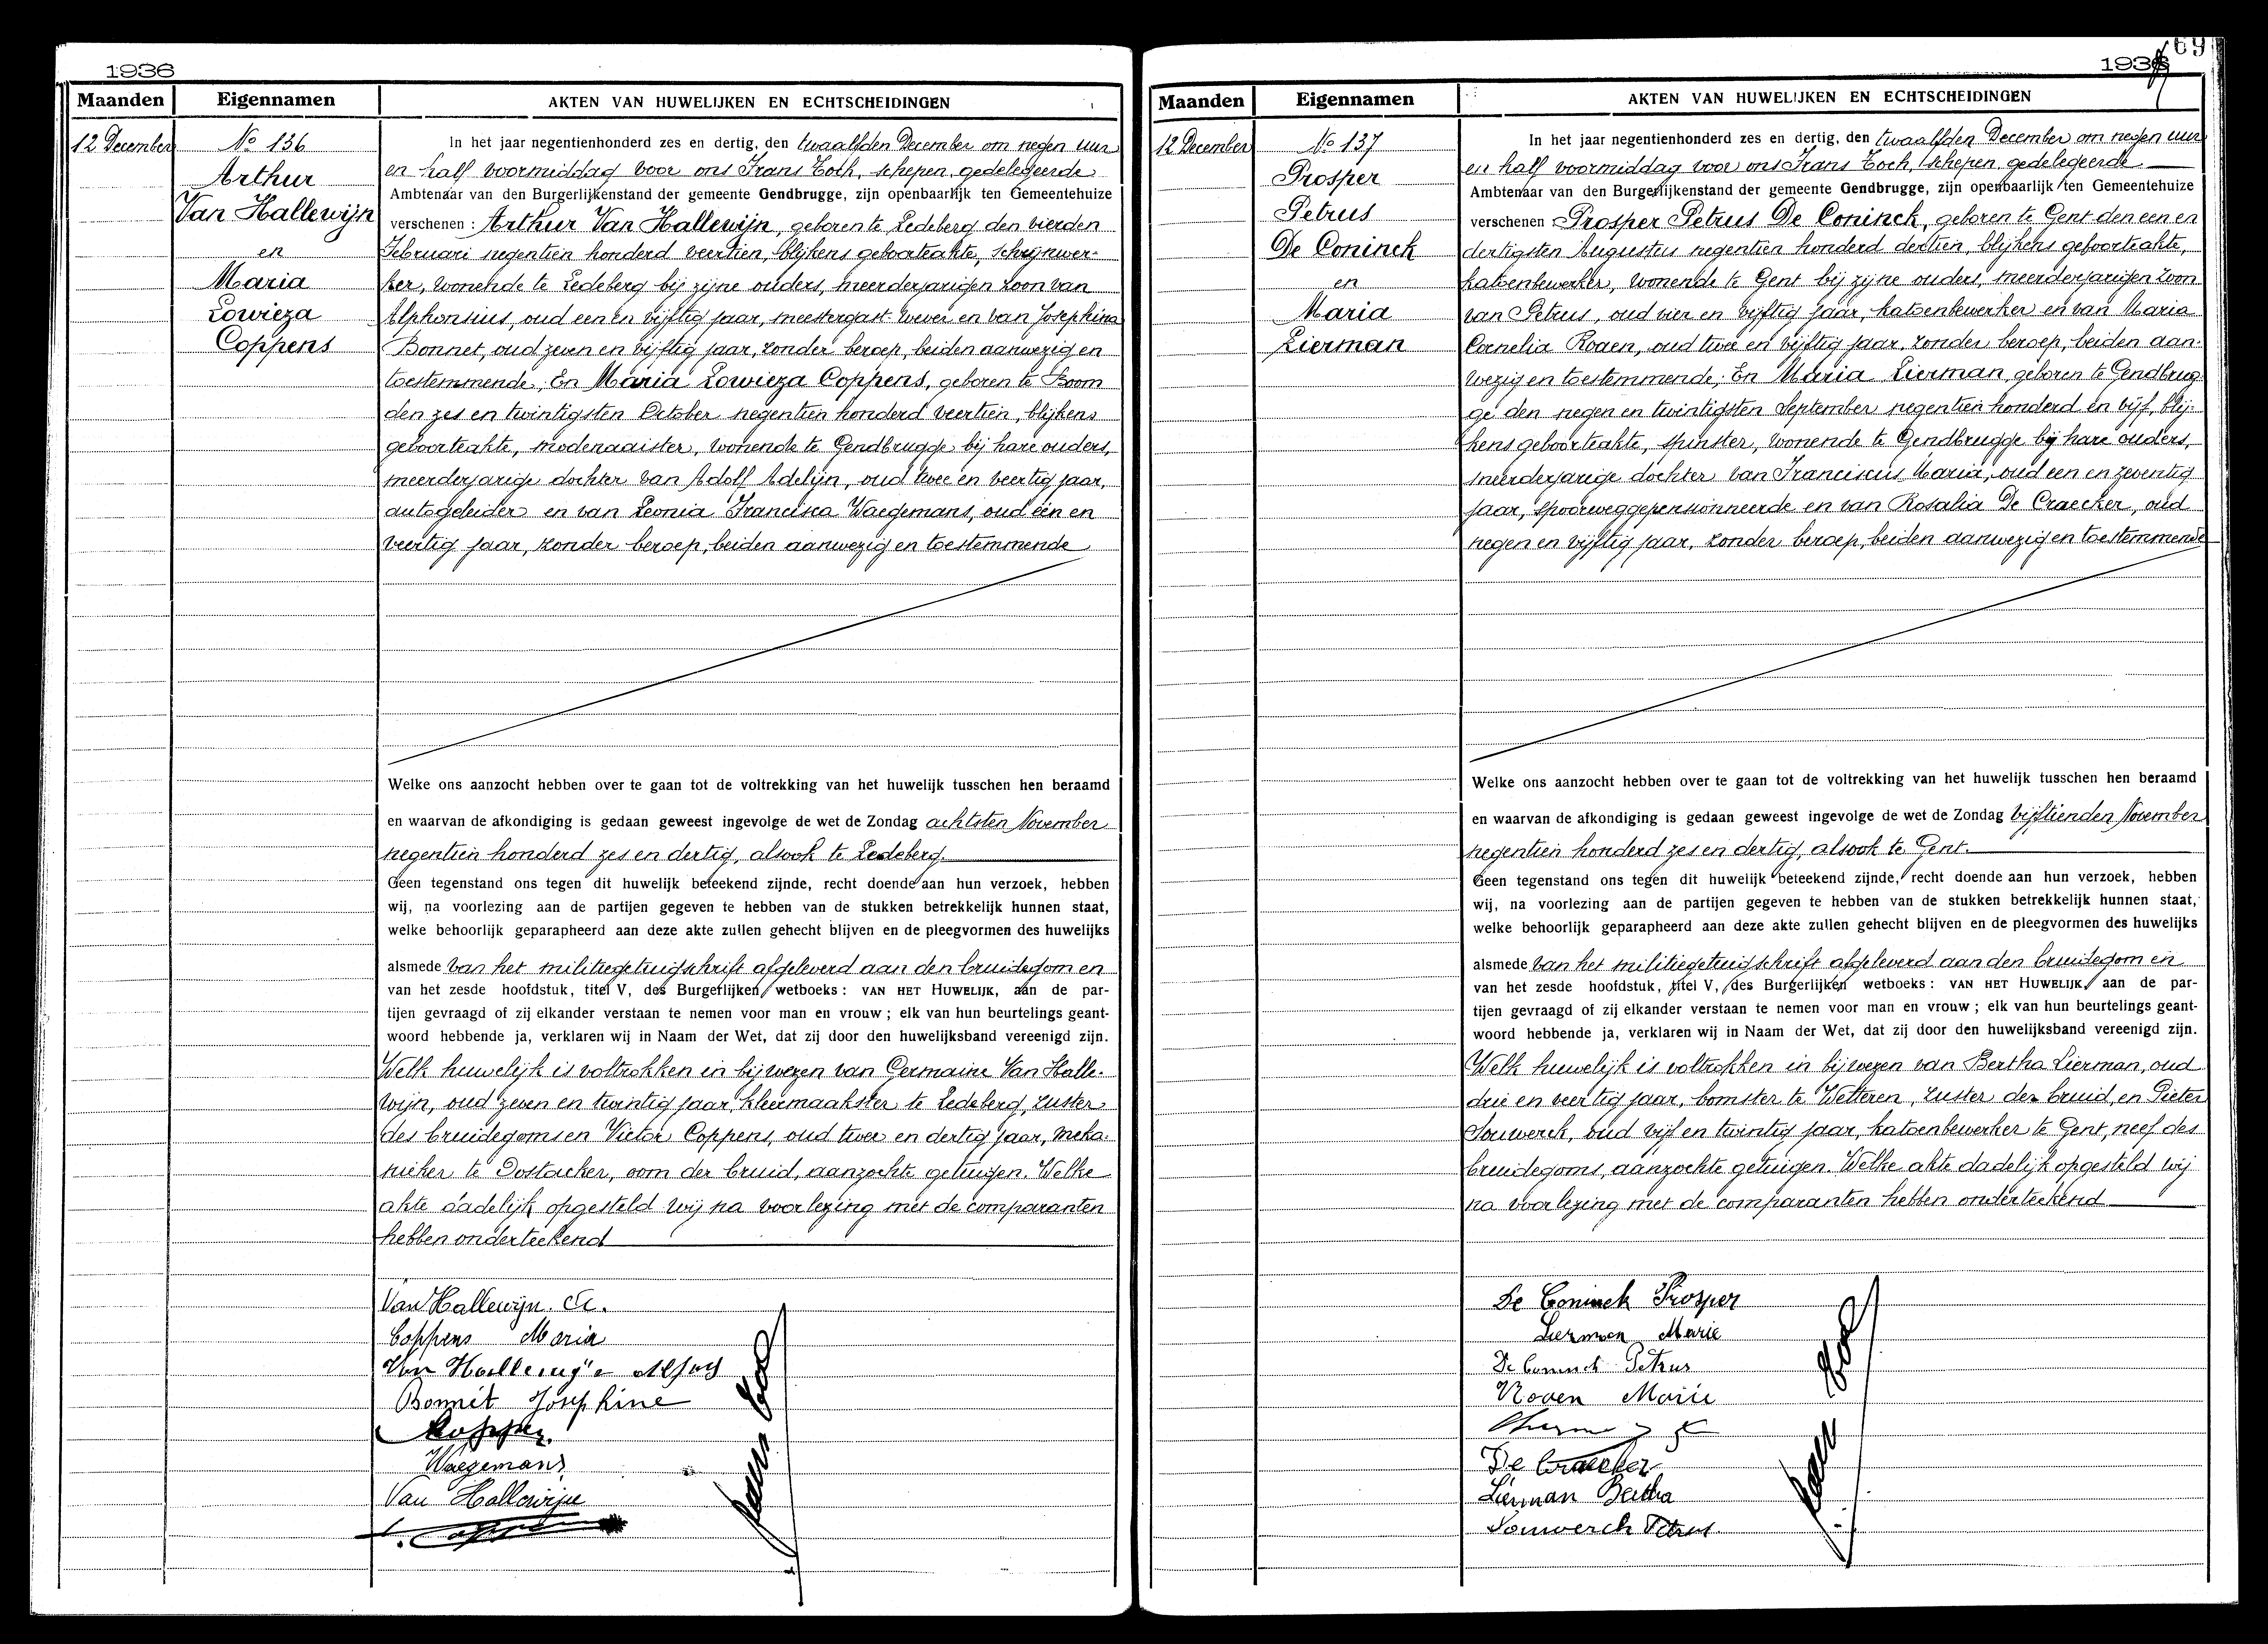 1936
Maanden Eigennamen AKTEN VAN HUWELIJKEN EN ECHTSCHEIDINGEN
12 December
No 136
Arthur
Van Hallewijn
en
Maria
Lowieza
Coppens
In het jaar negentienhonderd zes en dertig, den twaalfden December om negen uur
en half voormiddag voor ons Frans Toch, schepen, gedelegeerde
Ambtenaar van den Burgerlijkenstand der gemeente Gendbrugge, zijn openbaarlijk ten Gemeentehuize
verschenen : Arthur Van Hallewijn, geboren te Ledeberg den vierden
Februari negentien honderd veertien, blijkens geboorteakte, schrijnwer-
ker, wonende te Ledeberg bij zijne ouders, meerderjarigen zoon van
Alphonsius, oud een en vijftig jaar, meestergast wever en van Josephina
Bonnet, oud zeven en vijftig jaar, zonder beroep, beiden aanwezig en
toestemmende; En Maria Lowieza Coppens, geboren te Boom
den zes en twintigsten October negentien honderd veertien, blijkens
geboorteakte, modenaaister, wonende te Gendbrugge bij hare ouders,
meerderjarige dochter van Adolf Adelijn, oud twee en veertig jaar,
autogeleider en van Leonia Francisca Waegemans, oud één en
veertig jaar, zonder beroep, beiden aanwezig en toestemmende
Welke ons aanzocht hebben over te gaan tot de voltrekking van het huwelijk tusschen hen beraamd
en waarvan de afkondiging is gedaan geweest ingevolge de wet de Zondag achtsten November
negentien honderd zes en dertig, alsook te Ledeberg.
Geen tegenstand ons tegen dit huwelijk beteekend zijnde, recht doende aan hun verzoek, hebben
wij, na voorlezing aan de partijen gegeven te hebben van de stukken betrekkelijk hunnen staat,
welke behoorlijk geparapheerd aan deze akte zullen gehecht blijven en de pleegvormen des huwelijks
alsmede van het militiegetuigschrift afgeleverd aan den bruidegom en
van het zesde hoofdstuk, titel V, des Burgerlijken wetboeks : VAN HET HUWELIJK, aan de par-
tijen gevraagd of zij elkander verstaan te nemen voor man en vrouw ; elk van hun beurtelings geant-
woord hebbende ja, verklaren wij in Naam der Wet, dat zij door den huwelijksband vereenigd zijn.
Welk huwelijk is voltrokken in bijwezen van Germaine Van Halle-
wijn, oud zeven en twintig jaar, kleermaakster te Ledeberg, zuster
des bruidegoms en Victor Coppens, oud twee en dertig jaar, meka-
nieker te Oostacker, oom der bruid, aanzochte getuigen. Welke
akte dadelijk opgesteld wij na voorlezing met de comparanten
hebben onderteekend
Van Hallewijn. A.
Coppens Maria
Van Hallewijn Alfons
Bonnet Josephine
Coppens
Waegemans
Van Hallewijn
Coppens
Frans Toch
69
1936
Maanden Eigennamen AKTEN VAN HUWELIJKEN EN ECHTSCHEIDINGEN
12 December
No 137
Prosper
Petrus
De Coninck
en
Maria
Lierman
In het jaar negentienhonderd zes en dertig, den twaalfden December om negen uur
en half voormiddag voor ons Frans Toch, schepen, gedelegeerde
Ambtenaar van den Burgerlijkenstand der gemeente Gendbrugge, zijn openbaarlijk ten Gemeentehuize
verschenen Prosper Petrus De Coninck, geboren te Gent den een en
dertigsten Augustus negentien honderd dertien, blijkens geboorteakte,
katoenbewerker, wonende te Gent bij zijne ouders, meerderjarigen zoon
van Petrus, oud vier en vijftig jaar, katoenbewerker en van Maria
Cornelia Roaen, oud twee en vijftig jaar, zonder beroep, beiden aan-
wezig en toestemmende; En Maria Lierman, geboren te Gendbrug-
ge den negen en twintigsten September negentien honderd en vijf, blij-
kens geboorteakte, spinster, wonende te Gendbrugge bij hare ouders,
meerderjarige dochter van Franciscus Maria, oud een en zeventig
jaar, spoorweggepensionneerde en van Rosalia De Craecker, oud
negen en vijftig jaar, zonder beroep, beiden aanwezig en toestemmende
Welke ons aanzocht hebben over te gaan tot de voltrekking van het huwelijk tusschen hen beraamd
en waarvan de afkondiging is gedaan geweest ingevolge de wet de Zondag vijftienden November
negentien honderd zes en dertig, alsook te Gent.
Geen tegenstand ons tegen dit huwelijk beteekend zijnde, recht doende aan hun verzoek, hebben
wij, na voorlezing aan de partijen gegeven te hebben van de stukken betrekkelijk hunnen staat,
welke behoorlijk geparapheerd aan deze akte zullen gehecht blijven en de pleegvormen des huwelijks
alsmede van het militiegetuigschrift afgeleverd aan den bruidegom en
van het zesde hoofdstuk, titel V, des Burgerlijken wetboeks : VAN HET HUWELIJK, aan de par-
tijen gevraagd of zij elkander verstaan te nemen voor man en vrouw ; elk van hun beurtelings geant-
woord hebbende ja, verklaren wij in Naam der Wet, dat zij door den huwelijksband vereenigd zijn.
Welk huwelijk is voltrokken in bijwezen van Bertha Lierman, oud
drie en veertig jaar, bomster te Wetteren, zuster der bruid, en Pieter
Souwerck, oud vijf en twintig jaar, katoenbewerker te Gent, neef des
bruidegoms, aanzochte getuigen. Welke akte dadelijk opgesteld wij
na voorlezing met de comparanten hebben onderteekend
De Coninck Prosper
Lierman Marie
De Coninck Petrus
Roaen Marie
De Craecker
Lierman Bertha
Souwerck Petrus
Frans Toch